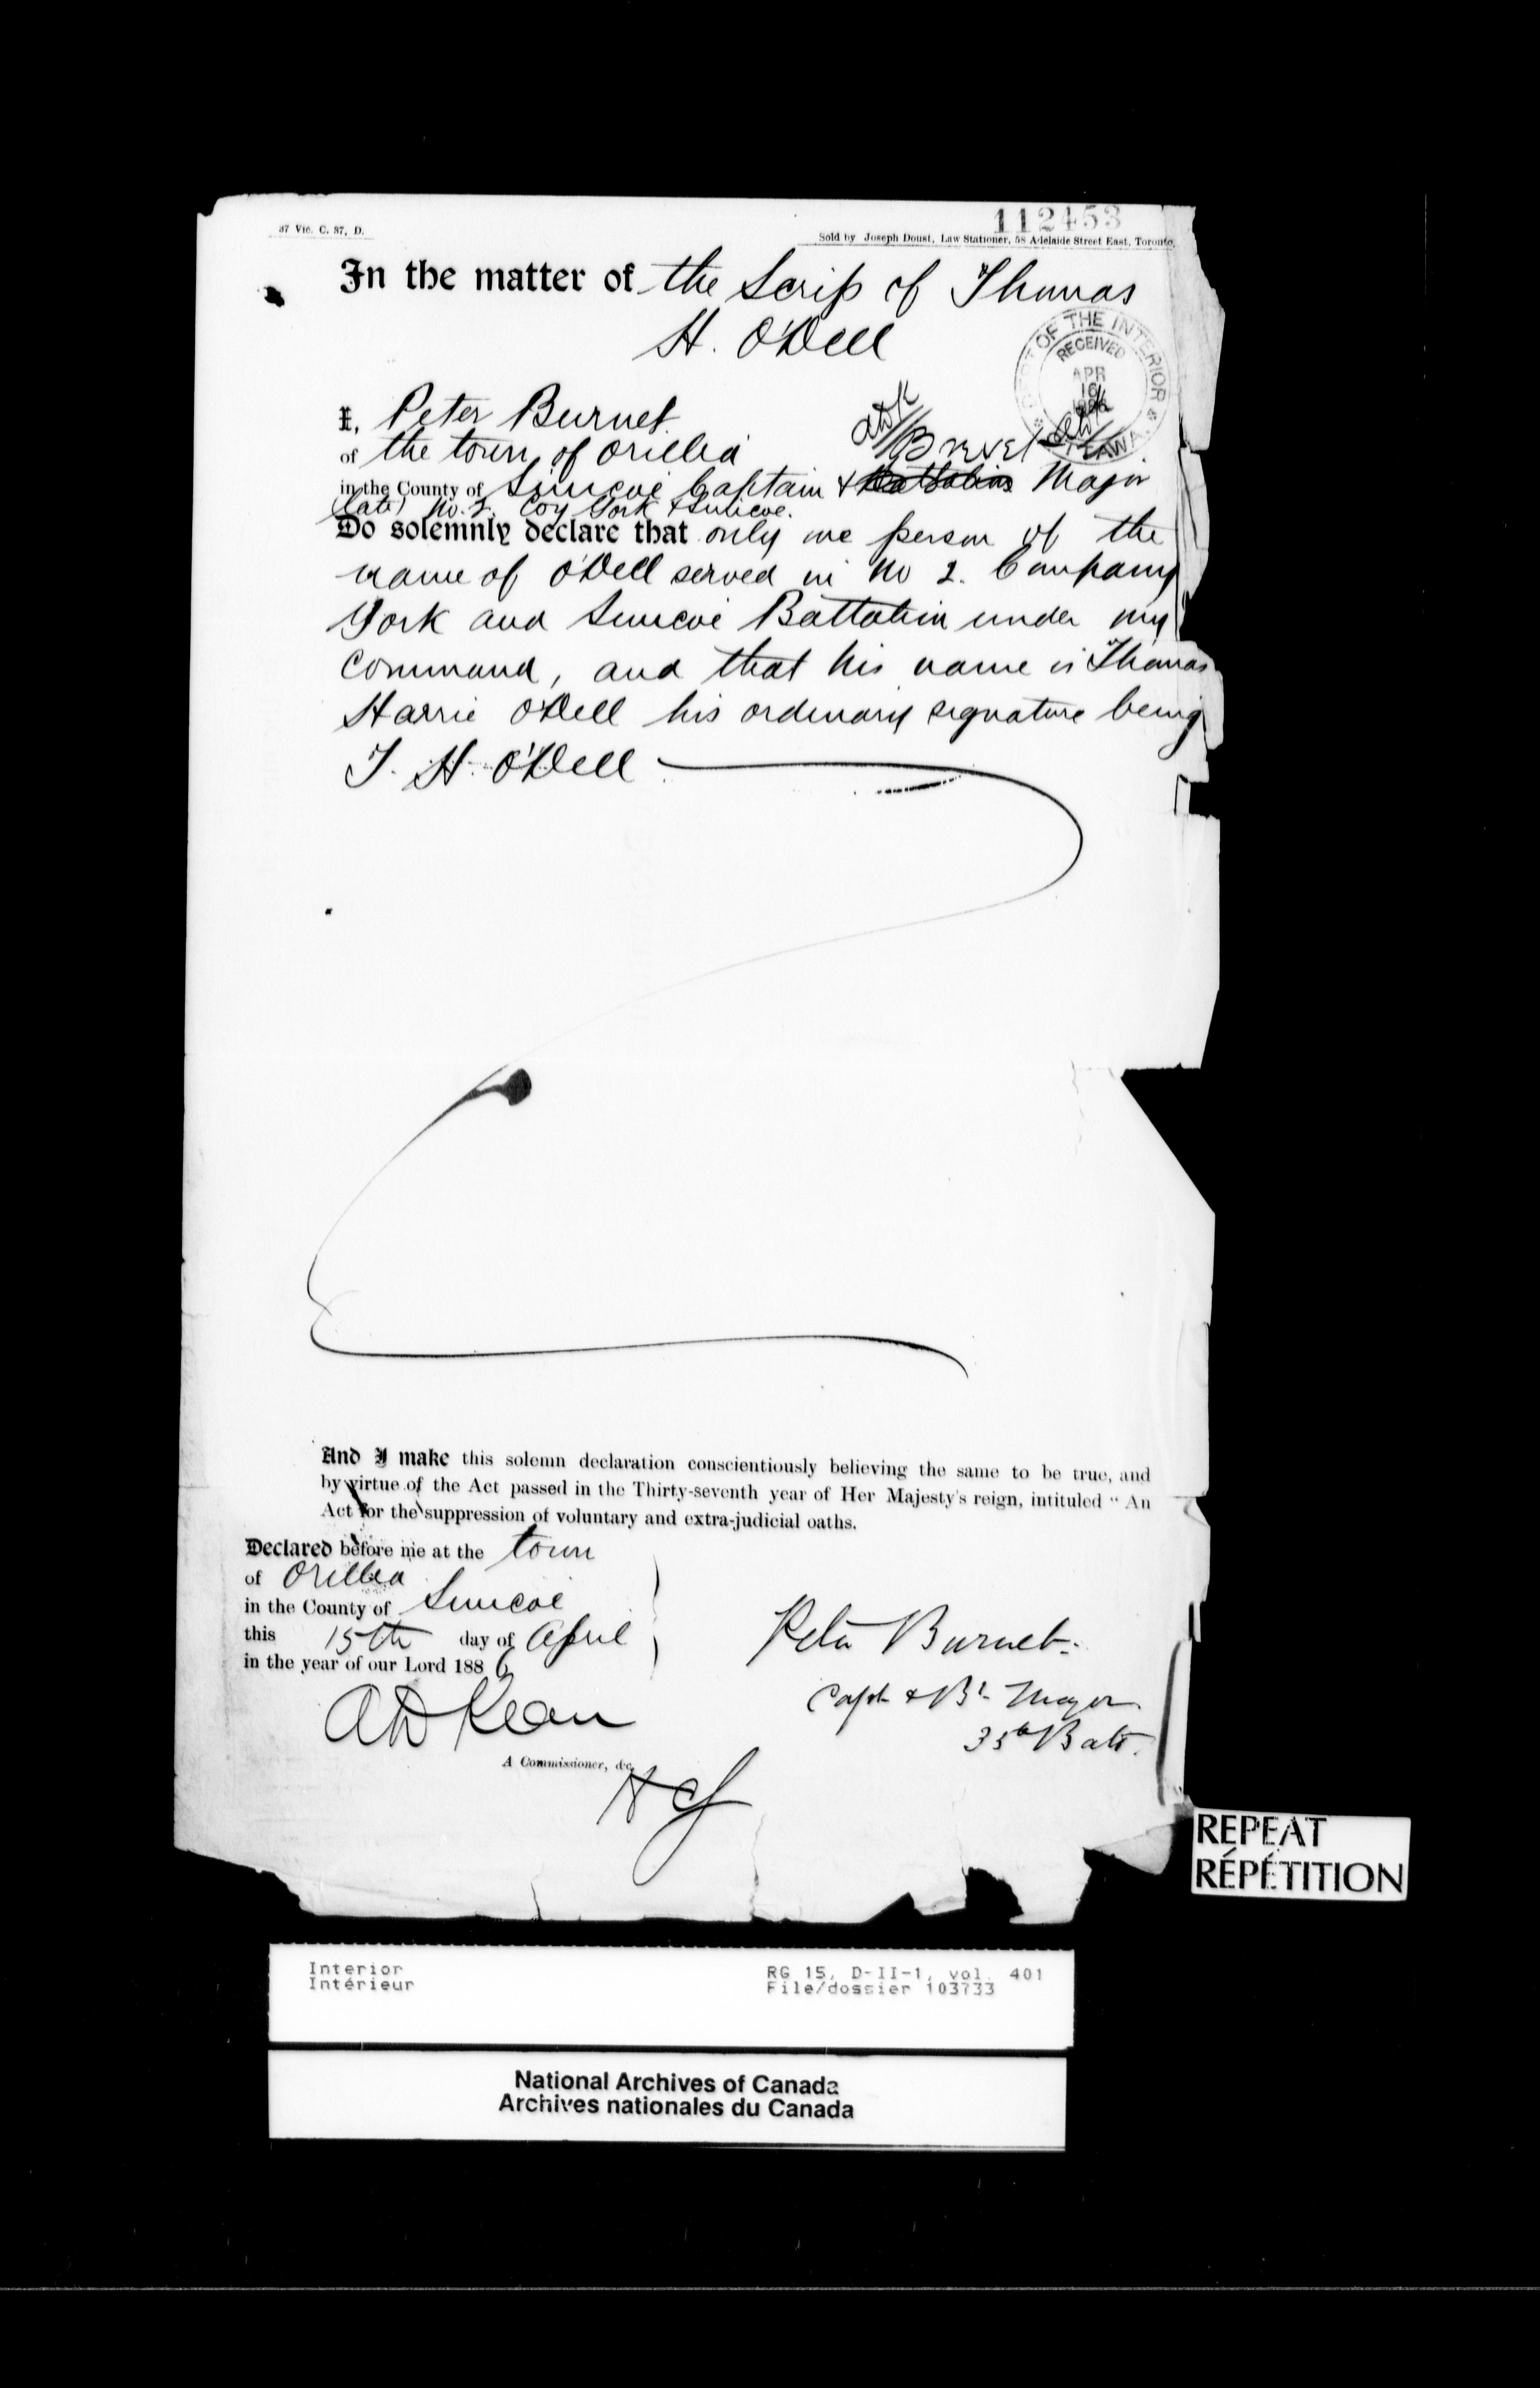 112453
37 Vic. C. 37, D.
Sold by Joseph Doust, Law Stationer, 58 Adelaide Street East, Toronto,
In the matter of the Scrip of Thomas
H. O'Dell
DEPT OF THE INTERIOR
RECEIVED
APR
16
1886
OTTAWA
I, Peter Burnet
of the town of Orillia
ADK
Brevet
in the County of Simcoe Captain & Battalion Major
(late) No. 2. Coy York & Simcoe.
Do solemnly declare that only one person of the
name of O'Dell served in No 2. Company
York and Simcoe Battalion under my
command, and that his name is Thomas
Harrie O'Dell his ordinary signature being
T. H. O'Dell
And I make this solemn declaration conscientiously believing the same to be true, and
by virtue of the Act passed in the Thirty-seventh year of Her Majesty's reign, intituled " An
Act for the suppression of voluntary and extra-judicial oaths.
Declared before me at the town
of Orillia
in the County of Simcoe
this 15th day of April
in the year of our Lord 1886
Peter Burnet
Capt & Bt. Major
35th Batt.
AD Kean
A Commissioner, &c.
REPEAT
RÉPÉTITION
Interior
Intérieur
RG 15, D-II-1, vol. 401
File/dossier 103733
National Archives of Canada
Archives nationales du Canada